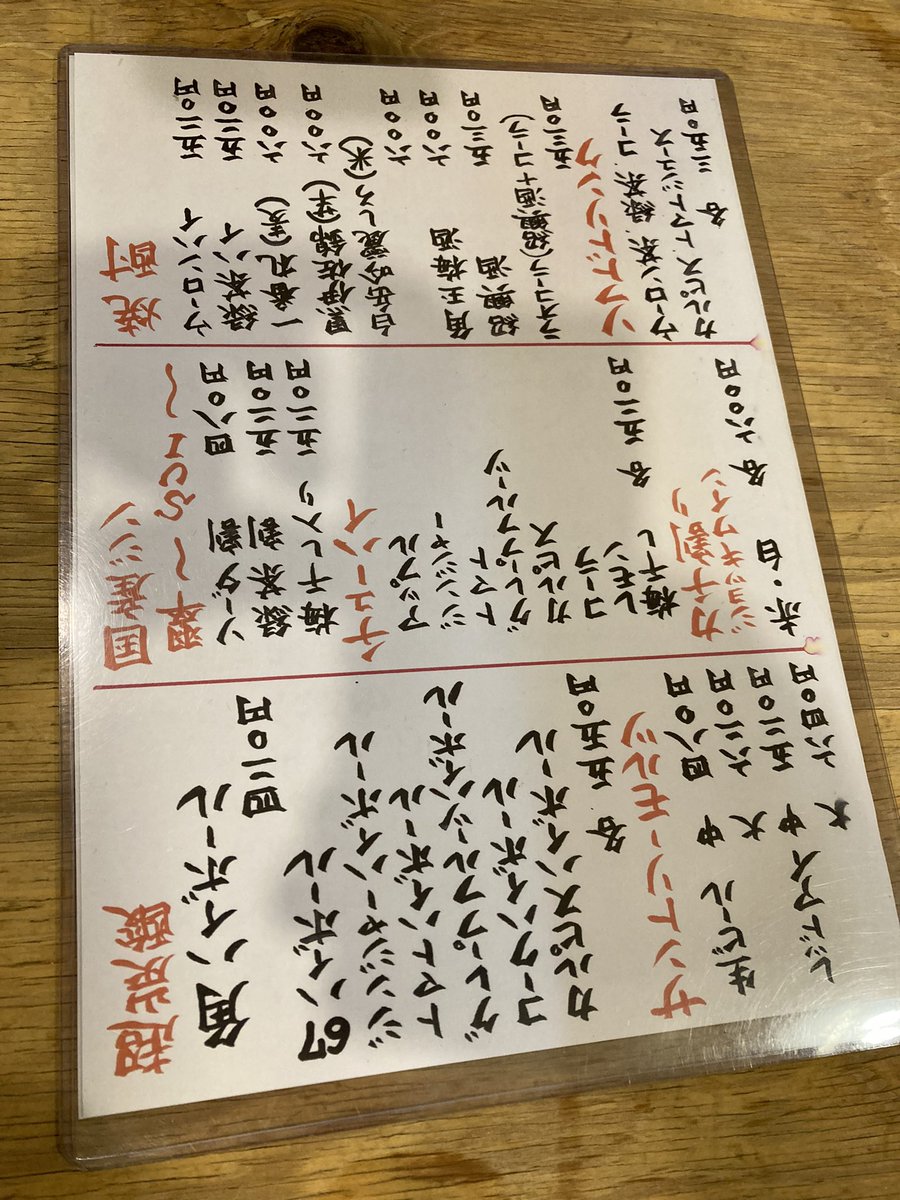 超炭酸
角ハイボール
四二〇円
67ハイボール
ジンジャーハイボール
トマトハイボール
グレープフルーツハイボール
コークハイボール
カルピスハイボール
各 五五〇円
サントリーモルツ
生ビール 中 四八〇円
大 六二〇円
レッドアイ 中 五二〇円
大 六四〇円
国産ジン
翠〜SUI〜
ソーダ割 四八〇円
緑茶割 五二〇円
梅干し入り 五二〇円
チューハイ
アップル
ジンジャー
トマト
グレープフルーツ
カルピス
コーラ
レモン 各 五二〇円
梅干し
カチ割り
ジョッキワイン
赤・白 各 六〇〇円
焼酎
ウーロンハイ 五二〇円
緑茶ハイ 五二〇円
一番札(麦) 六〇〇円
黒伊佐錦(芋) 六〇〇円
白岳吟麗しろ(米)
六〇〇円
角玉梅酒 六〇〇円
紹興酒 五二〇円
ラオコーラ(紹興酒+コーラ)
五二〇円
ソフトドリンク
ウーロン茶 緑茶 コーラ
カルピス トマトジュース
各 三五〇円